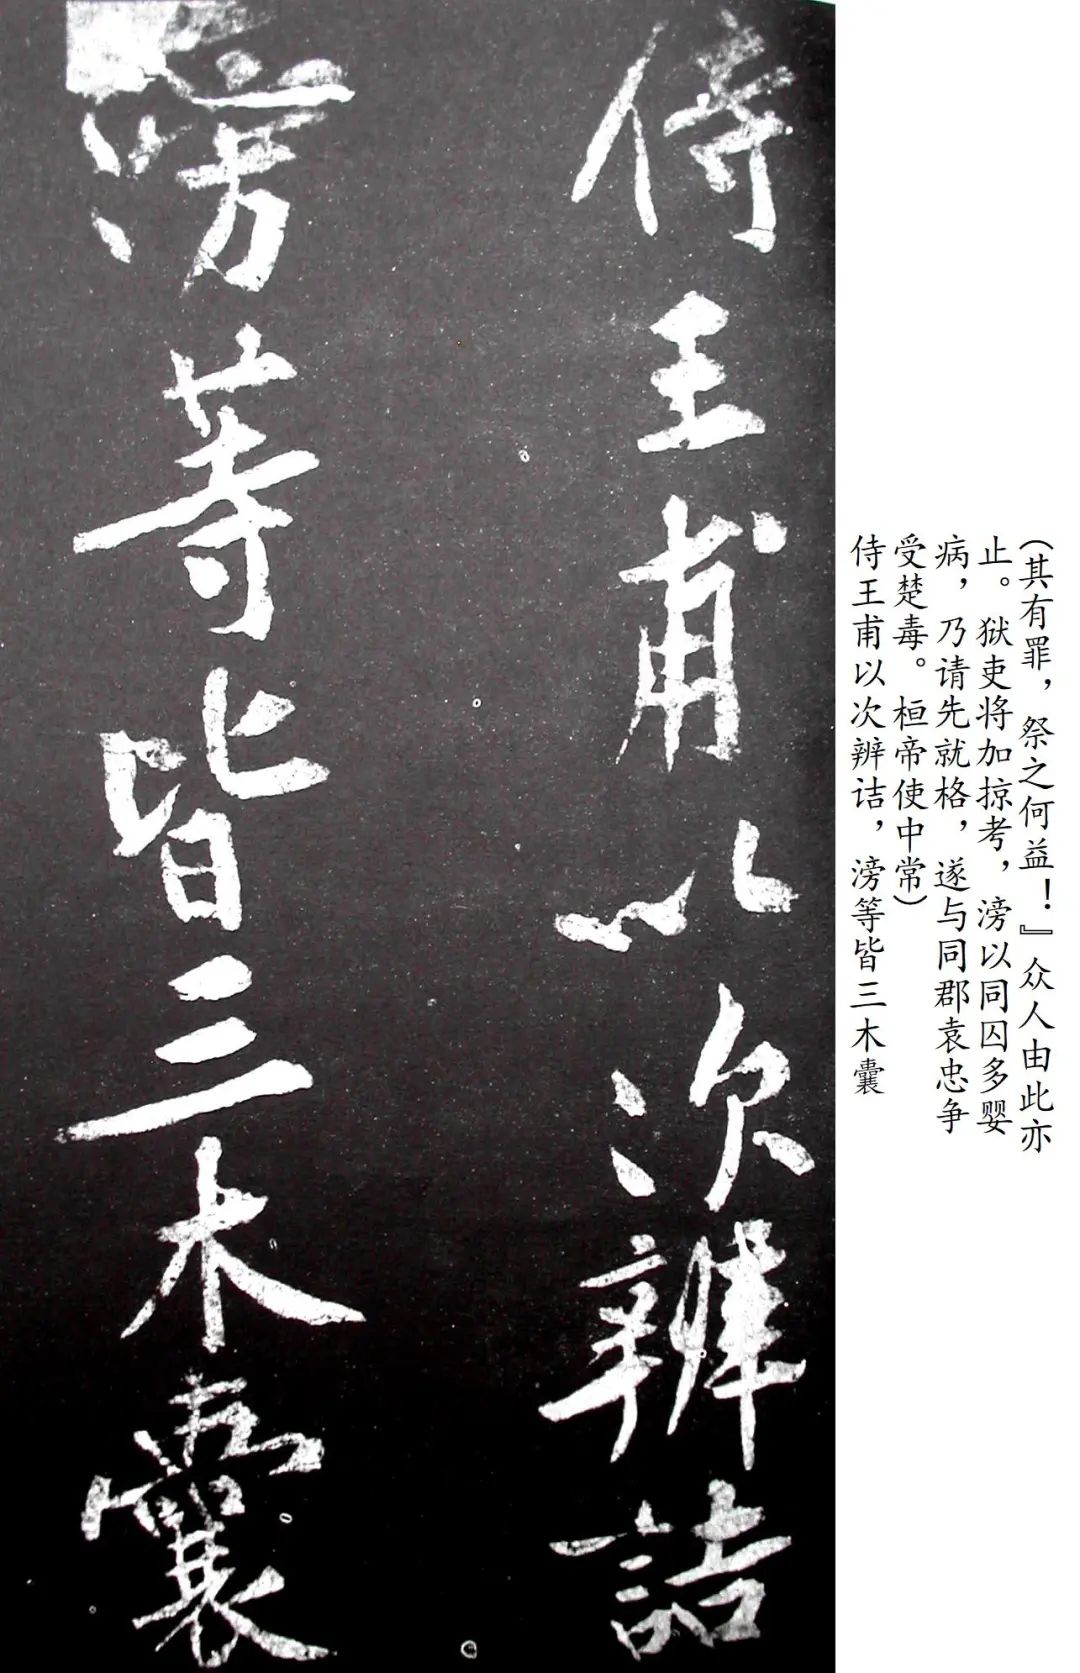 （其有罪，祭之何益！』众人由此亦
止。狱吏将加掠考，滂以同囚多婴
病，乃请先就格，遂与同郡袁忠争
受楚毒。桓帝使中常）
侍王甫以次辨诘，滂等皆三木囊
侍王甫以次辨詰
滂等皆三木囊